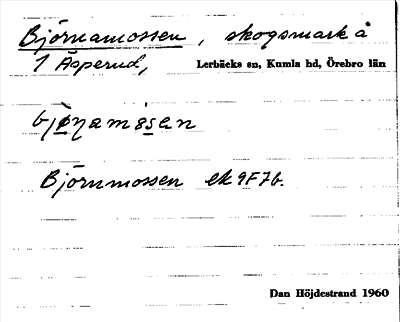 Björnamossen, skogsmark å
1 Åsperud, Lerbäcks sn, Kumla hd, Örebro län
Björnmossen ek 9F7b.
Dan Höjdestrand 1960